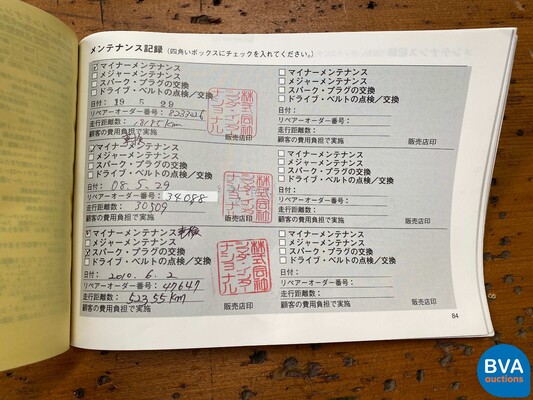 メンテナンス記録 (四角いボックスにチェックを入れてください。)
マイナーメンテナンス
メジャーメンテナンス
スパーク・プラグの交換
ドライブ・ベルトの点検/交換
日付: 19 5 29
リペアーオーダー番号:
走行距離数:
顧客の費用負担で実施
販売店印
車検
マイナーメンテナンス
メジャーメンテナンス
スパーク・プラグの交換
ドライブ・ベルトの点検/交換
日付: 08. 5. 29
リペアーオーダー番号: 34088
走行距離数: 30509
顧客の費用負担で実施
販売店印
マイナーメンテナンス 車検
メジャーメンテナンス
スパーク・プラグの交換
ドライブ・ベルトの点検/交換
日付: 2010. 6. 2
リペアーオーダー番号: 47647
走行距離数: 52355km
顧客の費用負担で実施
販売店印
株式会社
シマダ・インター
ナショナル
マイナーメンテナンス
メジャーメンテナンス
スパーク・プラグの交換
ドライブ・ベルトの点検/交換
日付:
リペアーオーダー番号:
走行距離数:
顧客の費用負担で実施
販売店印
マイナーメンテナンス
メジャーメンテナンス
スパーク・プラグの交換
ドライブ・ベルトの点検/交換
日付:
リペアーオーダー番号:
走行距離数:
顧客の費用負担で実施
販売店印
マイナーメンテナンス
メジャーメンテナンス
スパーク・プラグの交換
ドライブ・ベルトの点検/交換
日付:
リペアーオーダー番号:
走行距離数:
顧客の費用負担で実施
販売店印
84
BVA
auctions